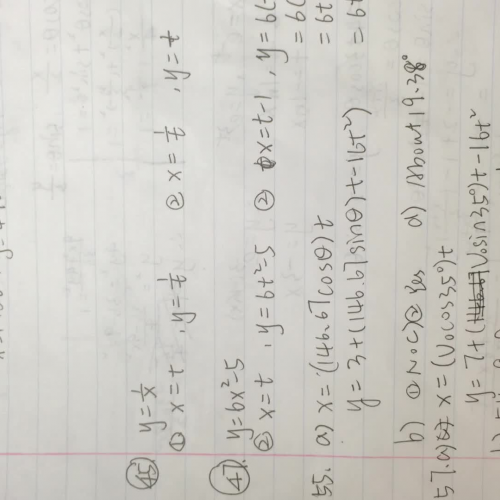 45. y=1/x
① x=t , y=1/t ② x=1/t , y=t
47. y=6x²-5
② x=t , y=6t²-5 ② x=t-1 , y=6(
= 6(
55. a) x=(146.67cosθ)t = 6t
y=3+(146.67sinθ)t-16t²) = 6t
b) ① No c) ② Yes d) About 19.38°
57. a) x=(V₀cos35°)t
y=7+(V₀sin35°)t-16t²